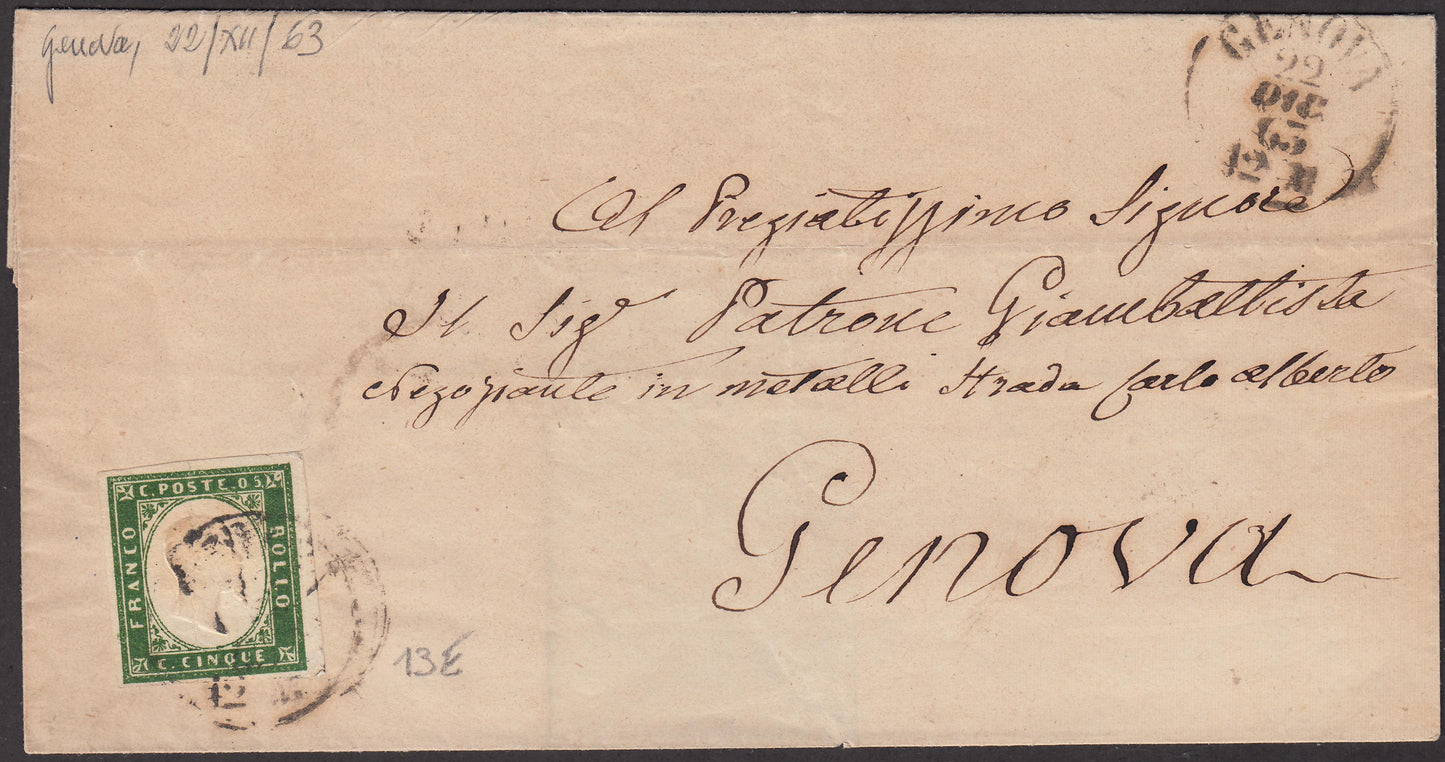 Genova, 22/XII/63
GENOVA
22
DIC
63
12 M
Al Pregiatissimo Signore
Il Sigr Patrone Giambattista
Negoziante in metalli Strada Carlo Alberto
Genova
C. POSTE. 05.
FRANCO
BOLLO
C. CINQUE
12
13E